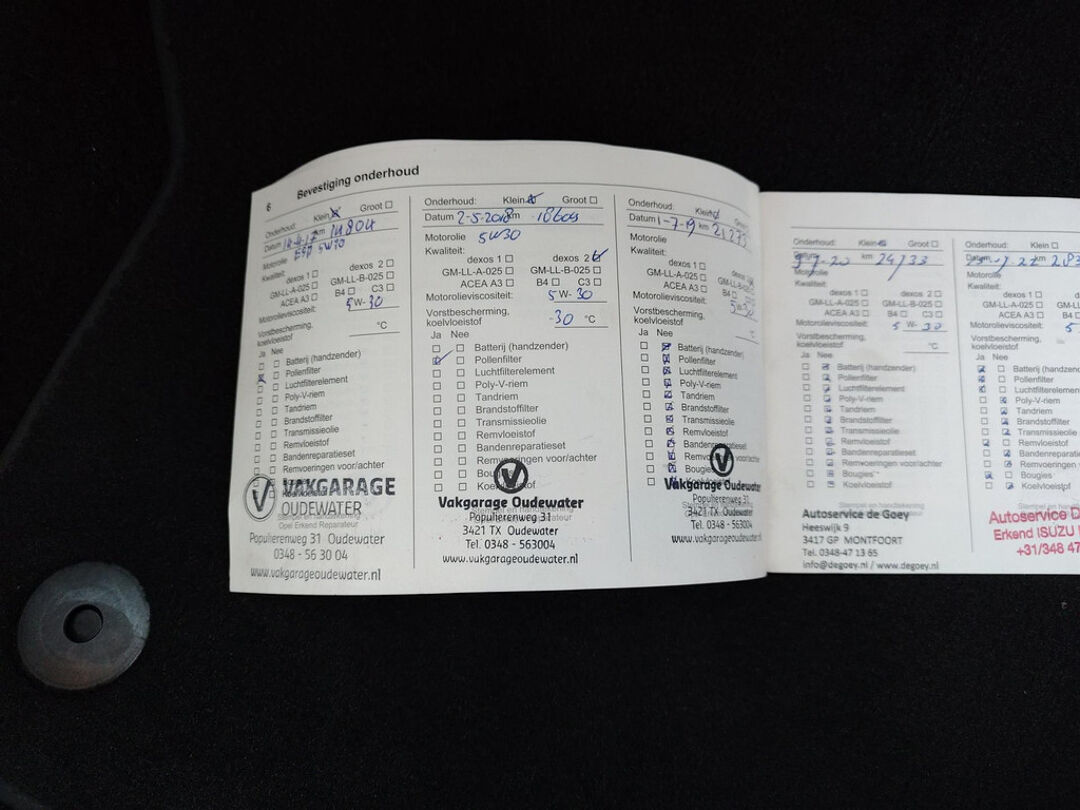 6 Bevestiging onderhoud
Onderhoud: Klein Groot
Datum km 14804
Motorolie 5W30
Kwaliteit:
dexos 1 dexos 2
GM-LL-A-025 GM-LL-B-025
ACEA A3 B4 C3
Motorolieviscositeit: 5W-30
Vorstbescherming,
koelvloeistof °C
Ja Nee
Batterij (handzender)
Pollenfilter
Luchtfilterelement
Poly-V-riem
Tandriem
Brandstoffilter
Transmissieolie
Remvloeistof
Bandenreparatieset
Remvoeringen voor/achter
VAKGARAGE
OUDEWATER
Opel Erkend Reparateur
Populierenweg 31 Oudewater
0348 - 56 30 04
www.vakgarageoudewater.nl
Onderhoud: Klein Groot
Datum 2-5-2018 km 18609
Motorolie 5W30
Kwaliteit:
dexos 1 dexos 2
GM-LL-A-025 GM-LL-B-025
ACEA A3 B4 C3
Motorolieviscositeit: 5W-30
Vorstbescherming,
koelvloeistof -30 °C
Ja Nee
Batterij (handzender)
Pollenfilter
Luchtfilterelement
Poly-V-riem
Tandriem
Brandstoffilter
Transmissieolie
Remvloeistof
Bandenreparatieset
Remvoeringen voor/achter
Vakgarage Oudewater
Populierenweg 31
3421 TX Oudewater
Tel. 0348 - 563004
www.vakgarageoudewater.nl
Onderhoud: Klein
Datum 1-7-19 km 21275
Motorolie
Kwaliteit:
dexos 1
GM-LL-A-025
ACEA A3 B4
Motorolieviscositeit: 5W-30
Vorstbescherming,
koelvloeistof
Ja Nee
Batterij (handzender)
Pollenfilter
Luchtfilterelement
Poly-V-riem
Tandriem
Brandstoffilter
Transmissieolie
Remvloeistof
Bandenreparatieset
Bougies
Vakgarage Oudewater
Populierenweg 31
3421 TX Oudewater
Tel. 0348 - 563004
www.vakgarageoudewater
Onderhoud: Klein Groot
Datum km 24133
Motorolie
Kwaliteit:
dexos 1 dexos 2
GM-LL-A-025 GM-LL-B-025
ACEA A3 B4 C3
Motorolieviscositeit: 5 W-30
Vorstbescherming,
koelvloeistof °C
Ja Nee
Batterij (handzender)
Pollenfilter
Luchtfilterelement
Poly-V-riem
Tandriem
Brandstoffilter
Transmissieolie
Remvloeistof
Bandenreparatieset
Remvoeringen voor/achter
Bougies
Koelvloeistof
Stempel en handtekening
Autoservice de Goey
Heeswijk 9
3417 GP MONTFOORT
Tel. 0348-47 13 65
info@degoey.nl / www.degoey.nl
Onderhoud: Klein
Datum km 283
Motorolie
Kwaliteit:
dexos 1
GM-LL-A-025
ACEA A3 B4
Motorolieviscositeit: 5
Vorstbescherming,
koelvloeistof
Ja Nee
Batterij (handzen
Pollenfilter
Luchtfilterelement
Poly-V-riem
Tandriem
Brandstoffilter
Transmissieolie
Remvloeistof
Bandenreparatie
Remvoeringen
Bougies
Koelvloeistof
Autoservice D
Erkend ISUZU
+31/348 47